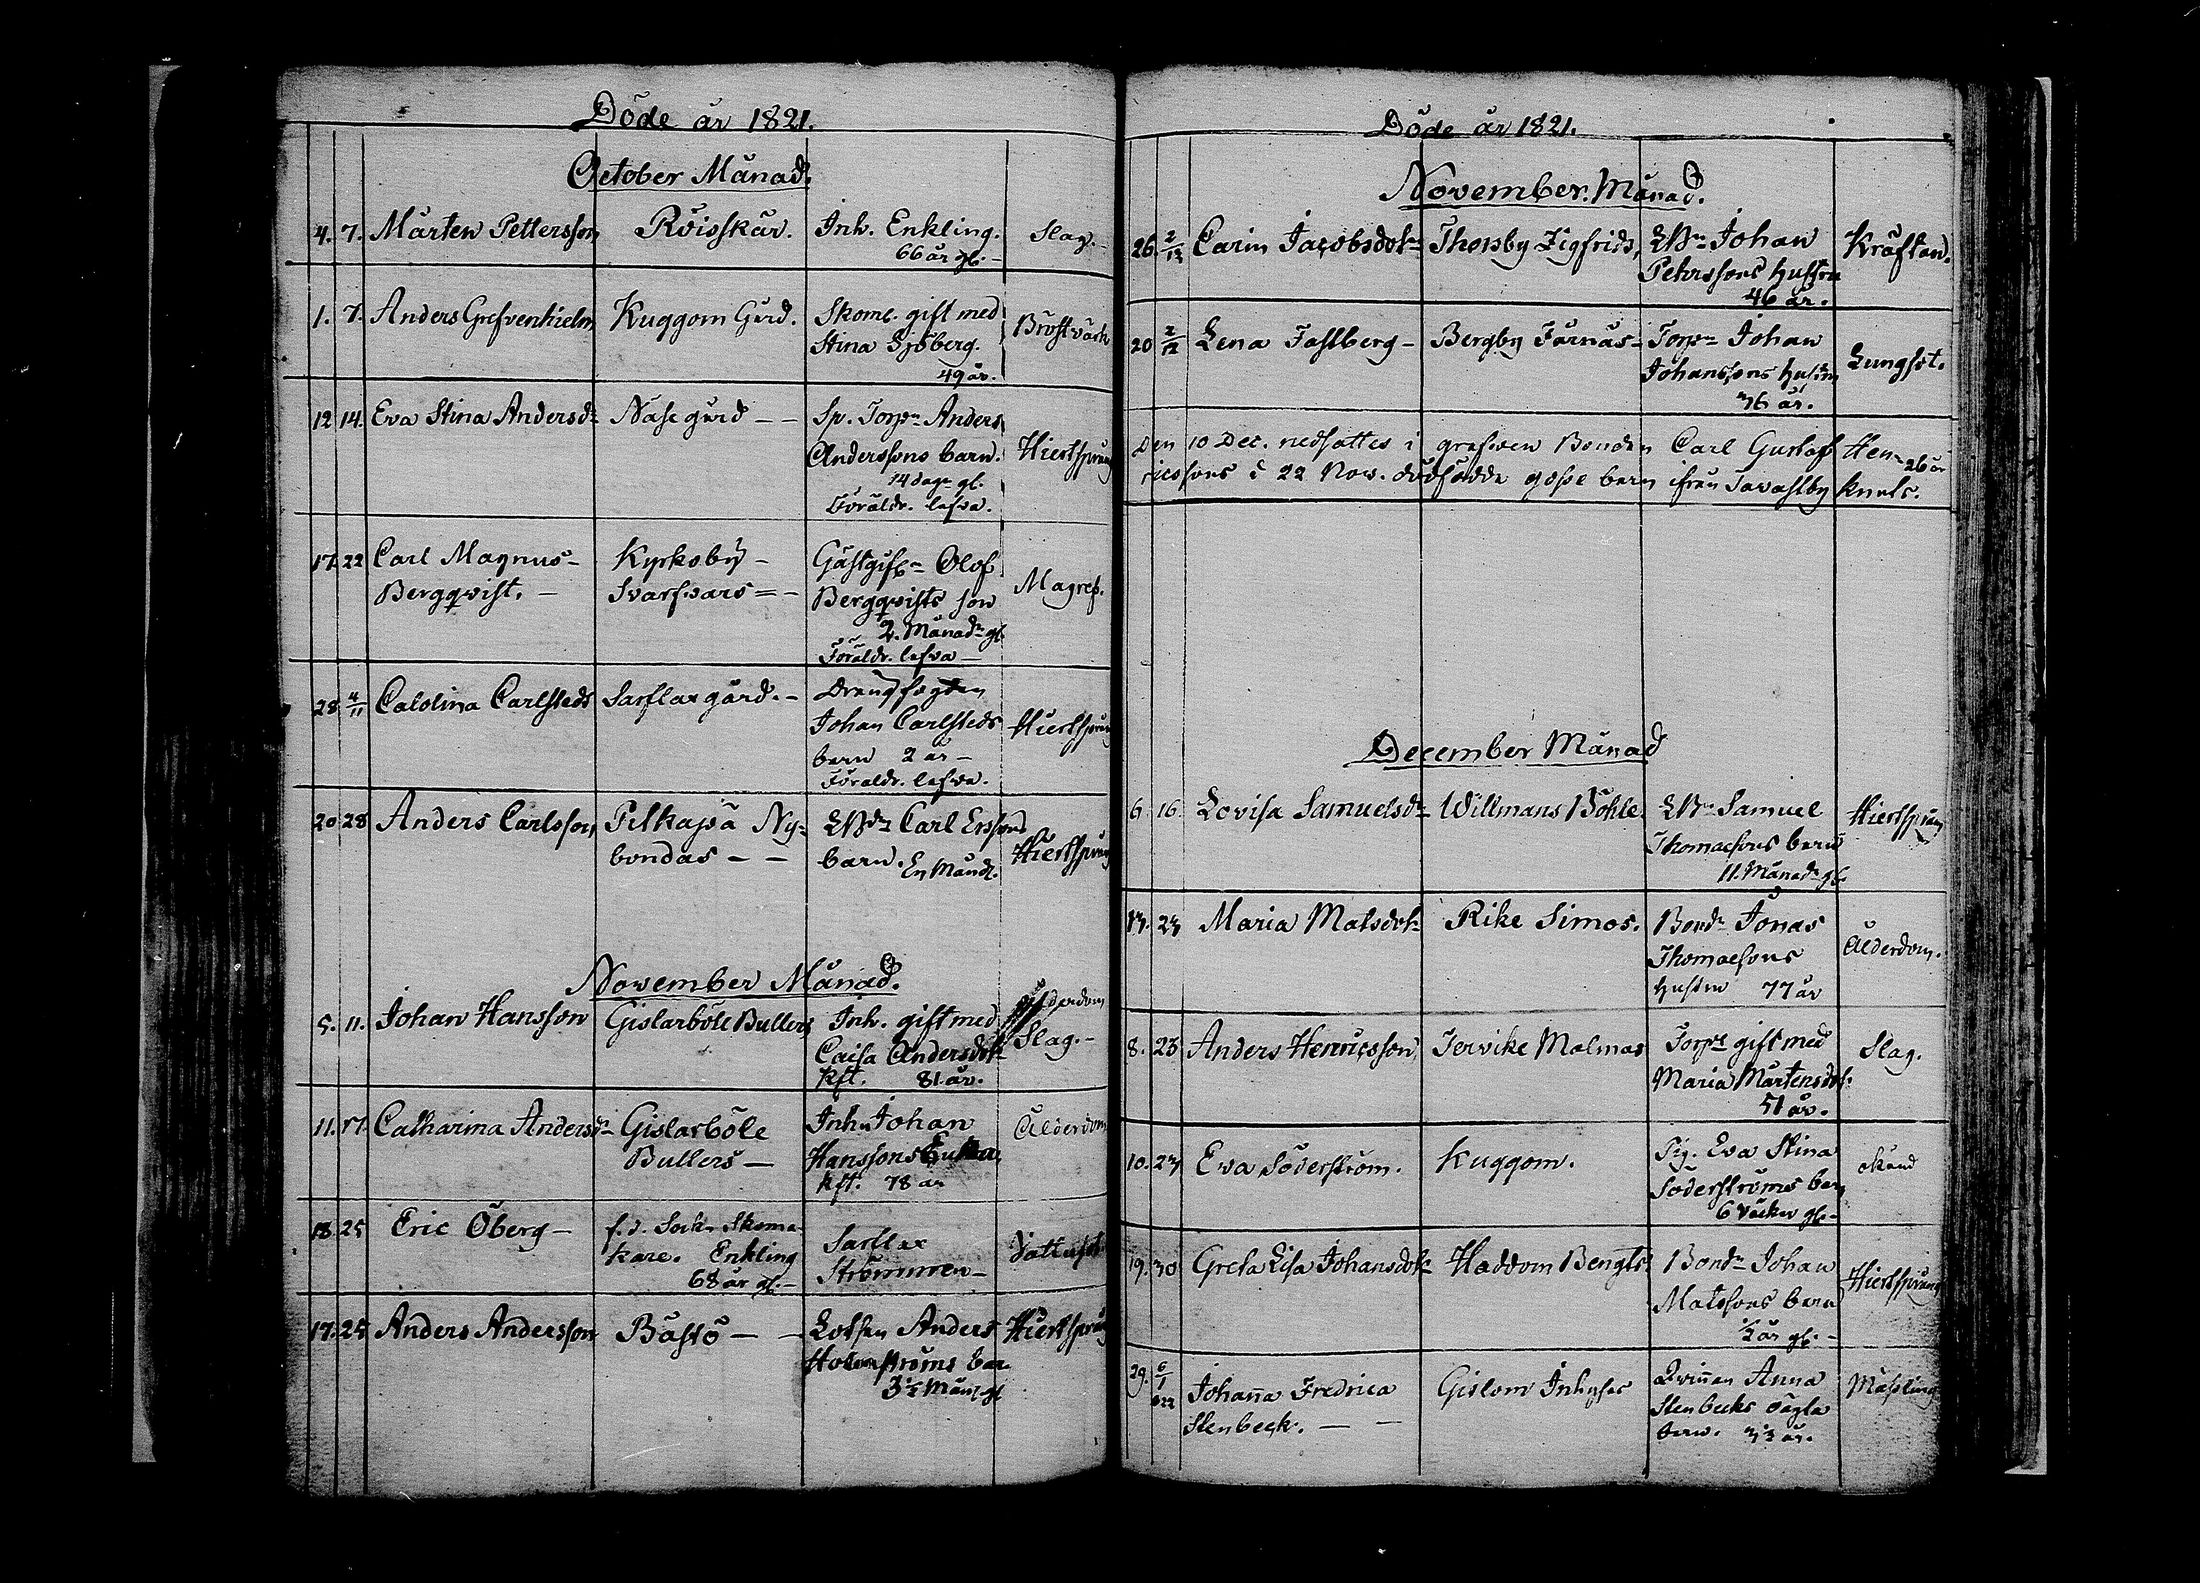 Döde år 1821.
October Månad.
4. 7. Mårten Pettersson Röisskär. Inh. Enkling. Slag.
66 år gl.
1. 7. Anders Grefvenhielm Kuggom Gård. Skom. gift med Bröstvärk
Stina Sjöberg.
49 år.
12 14. Eva Stina Andersdr Näse gård Sp. Torpr Anders Hiertsprång
Anderssons barn.
14 dagr gl.
Föräldr. lefva.
17. 22 Carl Magnus Kyrkoby Gästgifr Olof Magref.
Bergqvist. Svarfvars Bergqvists son
2. Månadr gl.
Föräldr. lefva
28 4/11 Calolina Carlsteds Sarflax gård. Drengfogden Hiertsprång
Johan Carlsteds
barn 2 år
Föräldr. lefva.
20 28 Anders Carlsson Pelkapä Ny= LBdr Carl Erssons Hiertsprång
bondas barn. En Månd.
November Månad.
5. 11. Johan Hansson Gislarböle Bullers Inh. gift med Ålderdom
Caisa Andersdotr Slag.
kft. 81 år.
11. 17. Catharina Andersdr Gislarböle Inhr Johan Ålderdom
Bullers Hanssons Enka
kft. 78 år
18. 25 Eric Öberg f.d. Sock. Skoma- Sarflax
kare. Enkling Strömmen
68 år gl.
17. 25 Anders Andersson Båstö Lotsen Anders Hiertsprång
Holmströms bar
3½ Mån gl
Döde år 1821.
November. Månad.
26. 2/12 Carin Jacobsdotr Thorsby Sigfrids, LBr Johan Kräftan.
Pehrssons hustru
46 år.
20 2/12 Lena Fastberg Bergby Färnäs Torpr Johan Lungsot.
Johanssons hustru
36 år.
Den 10 Dec. nedsattes i grafven Bonden Carl Gustaf Hen-
ricssons d 22 Nov. dödfödde gosse barn ifrån Savastby Knuts. 26 år
December Månad
6. 16. Lovisa Samuelsdr Willmans Böhle. LBr Samuel Hiertsprång
Thomaesons barn
11. Månadr gl.
13. 23 Maria Matsdotr Rike Simos. Bondr Jonas Ålderdom.
Thomaesons
hustru 77 år
8. 23 Anders Henricsson Tervike Malmas Torpr gift med Slag.
Maria Mårtensdotr.
51 år.
10. 23 Eva Söderström. Kuggom. Pig. Eva Stina okänd
Söderströms barn
6 veckor gl.
19. 30 Greta Lisa Johansdotr Haddom Bengts. Bondr Johan Hiertsprång
Matssons barn
½ år gl.
29. 6/1 822 Johanna Fredrica Gislom Inhyses Qvinnan Anna Mässling
Stenbeck. Stenbecks oägta
barn. 3½ år.